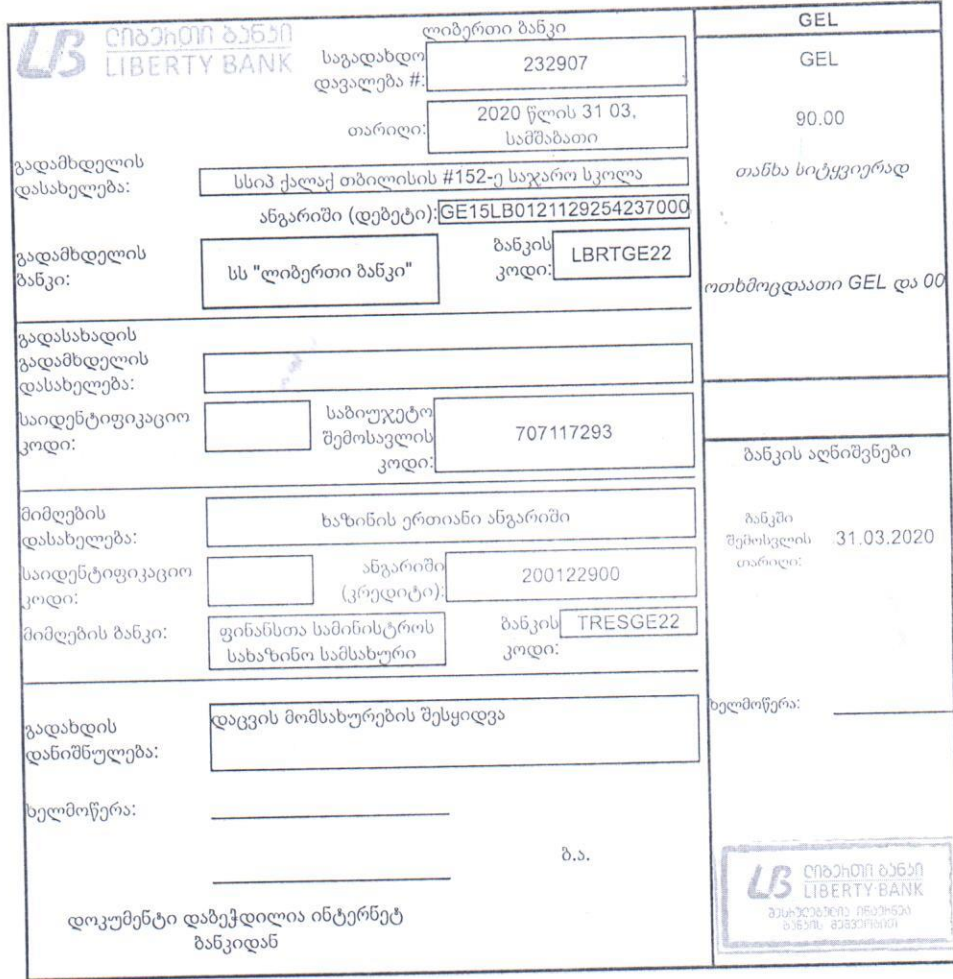 ლიბერთი ბანკი
LIBERTY BANK
ლიბერთი ბანკი
საგადახდო დავალება #:
232907
თარიღი:
2020 წლის 31 03,
სამშაბათი
გადამხდელის
დასახელება:
სსიპ ქალაქ თბილისის #152-ე საჯარო სკოლა
ანგარიში (დებეტი):
GE15LB0121129254237000
გადამხდელის
ბანკი:
სს "ლიბერთი ბანკი"
ბანკის
კოდი:
LBRTGE22
გადასახადის
გადამხდელის
დასახელება:
საიდენტიფიკაციო
კოდი:
საბიუჯეტო
შემოსავლის
კოდი:
707117293
მიმღების
დასახელება:
ხაზინის ერთიანი ანგარიში
საიდენტიფიკაციო
კოდი:
ანგარიში
(კრედიტი):
200122900
მიმღების ბანკი:
ფინანსთა სამინისტროს
სახაზინო სამსახური
ბანკის
კოდი:
TRESGE22
გადახდის
დანიშნულება:
დაცვის მომსახურების შესყიდვა
ხელმოწერა:
ბ.ა.
დოკუმენტი დაბეჭდილია ინტერნეტ
ბანკიდან
GEL
GEL
90.00
თანხა სიტყვიერად
ოთხმოცდაათი GEL და 00
ბანკის აღნიშვნები
ბანკში
შემოსვლის
თარიღი:
31.03.2020
ხელმოწერა:
ლიბერთი ბანკი
LIBERTY BANK